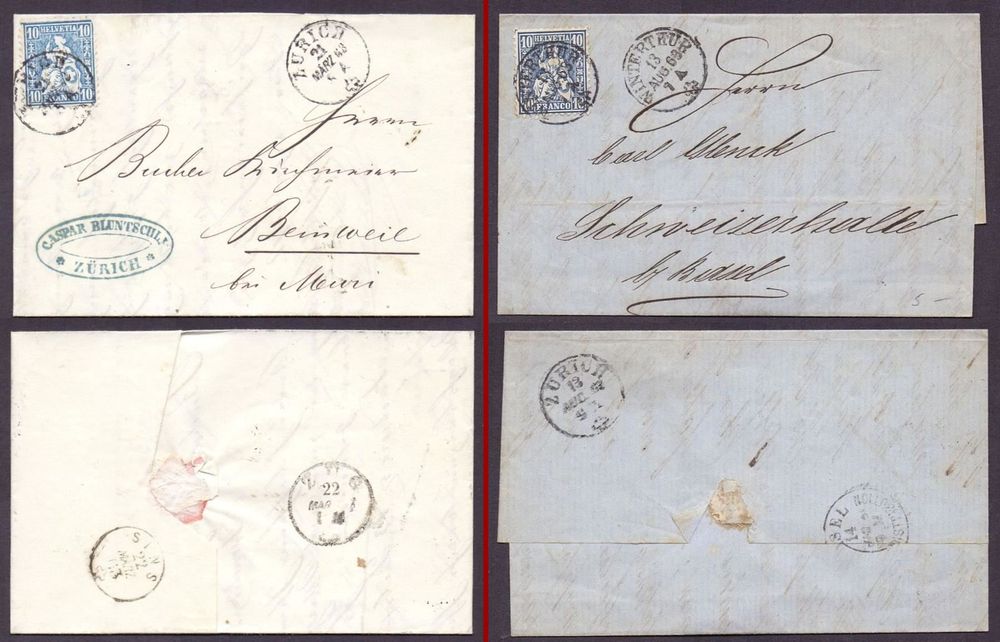 10 HELVETIA 10
10 FRANCO 10
ZÜRICH
21
MÄRZ 63
Herrn
Bucher Kirchmeier
Beinweil
bei Muri
CASPAR BLUNTSCHLI
ZÜRICH
ZUG
22
SINS
10 HELVETIA 10
FRANCO
WINTERTHUR
13
AUG 63
7 A
Herrn
Carl Glenck
Schweizerhalle
b/ Basel
5 -
ZÜRICH
13
AUG
14